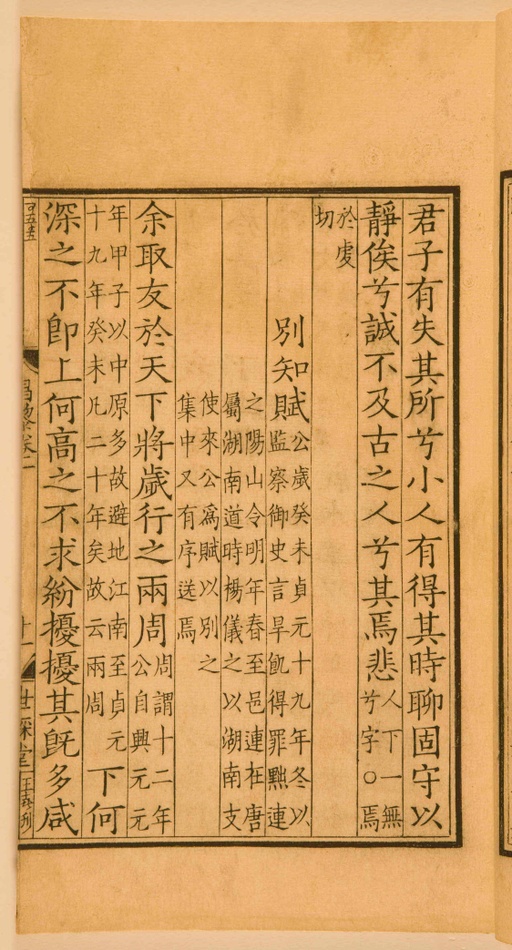 君子有失其所兮小人有得其時聊固守以
靜俟兮誠不及古之人兮其焉悲人下一無
兮字○焉
於虔
切
別知賦公歲癸未貞元十九年冬以
監察御史言旱飢得罪黜連
之陽山令明年春至邑連在唐
屬湖南道時楊儀之以湖南支
使來公爲賦以別之
集中又有序送焉
余取友於天下將歲行之兩周周謂十二年
公自興元元
年甲子以中原多故避地江南至貞元
十九年癸未凡二十年矣故云兩周下何
深之不卽上何高之不求紛擾擾其旣多咸
昌黎卷一
十一
世綵堂